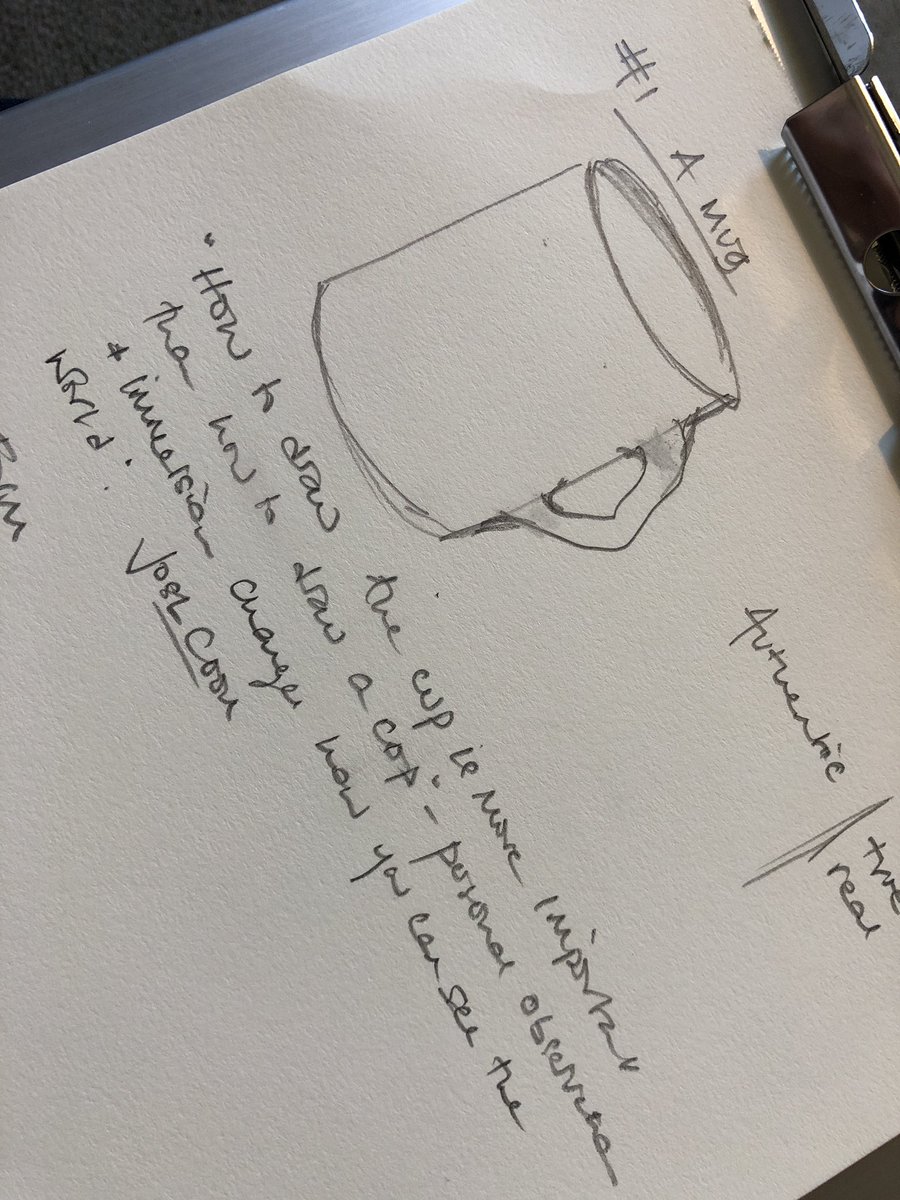 #1 A Mug
Authentic
true
real
"How to draw the cup is more important
than how to draw a cup" - personal observation
+ immersion changes how you can see the
world. Josh